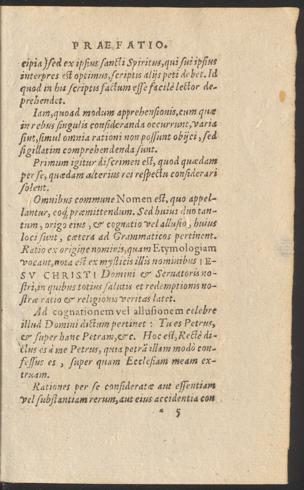 PRAEFATIO.
cipia) sed ex ipsius sancti Spiritus, qui sui ipsius
interpres est optimus, scriptis alijs peti debet. Id
quod in his scriptis factum esse facilè lector de-
prehendet.
Iam, quoad modum apprehensionis, cum quæ
in rebus singulis consideranda occurrunt, varia
sint, simul omnia rationi non possunt obijci, sed
sigillatim comprehendenda sunt.
Primum igitur discrimen est, quod quædam
per se, quædam alterius rei respectu considerari
solent.
Omnibus commune Nomen est, quo appel-
lantur, eoq́; præmittendum. Sed huius duo tan-
tum, origo eius, & cognatio vel allusio, huius
loci sunt, cætera ad Grammaticos pertinent.
Ratio ex origine nominis, quam Etymologiam
vocant, nota est ex mysticis illis nominibus IE-
SV CHRISTI Domini & Seruatoris no-
stri, in quibus totius salutis et redemptionis no-
stræ ratio & religionis veritas latet.
Ad cognationem vel allusionem celebre
illud Domini dictum pertinet: Tu es Petrus,
& super hanc Petram, &c. Hoc est, Rectè di-
ctus es à me Petrus, quia petrā illam modò con-
fessus es, super quam Ecclesiam meam ex-
truam.
Rationes per se consideratæ aut essentiam
vel substantiam rerum, aut eius accidentia con
* 5